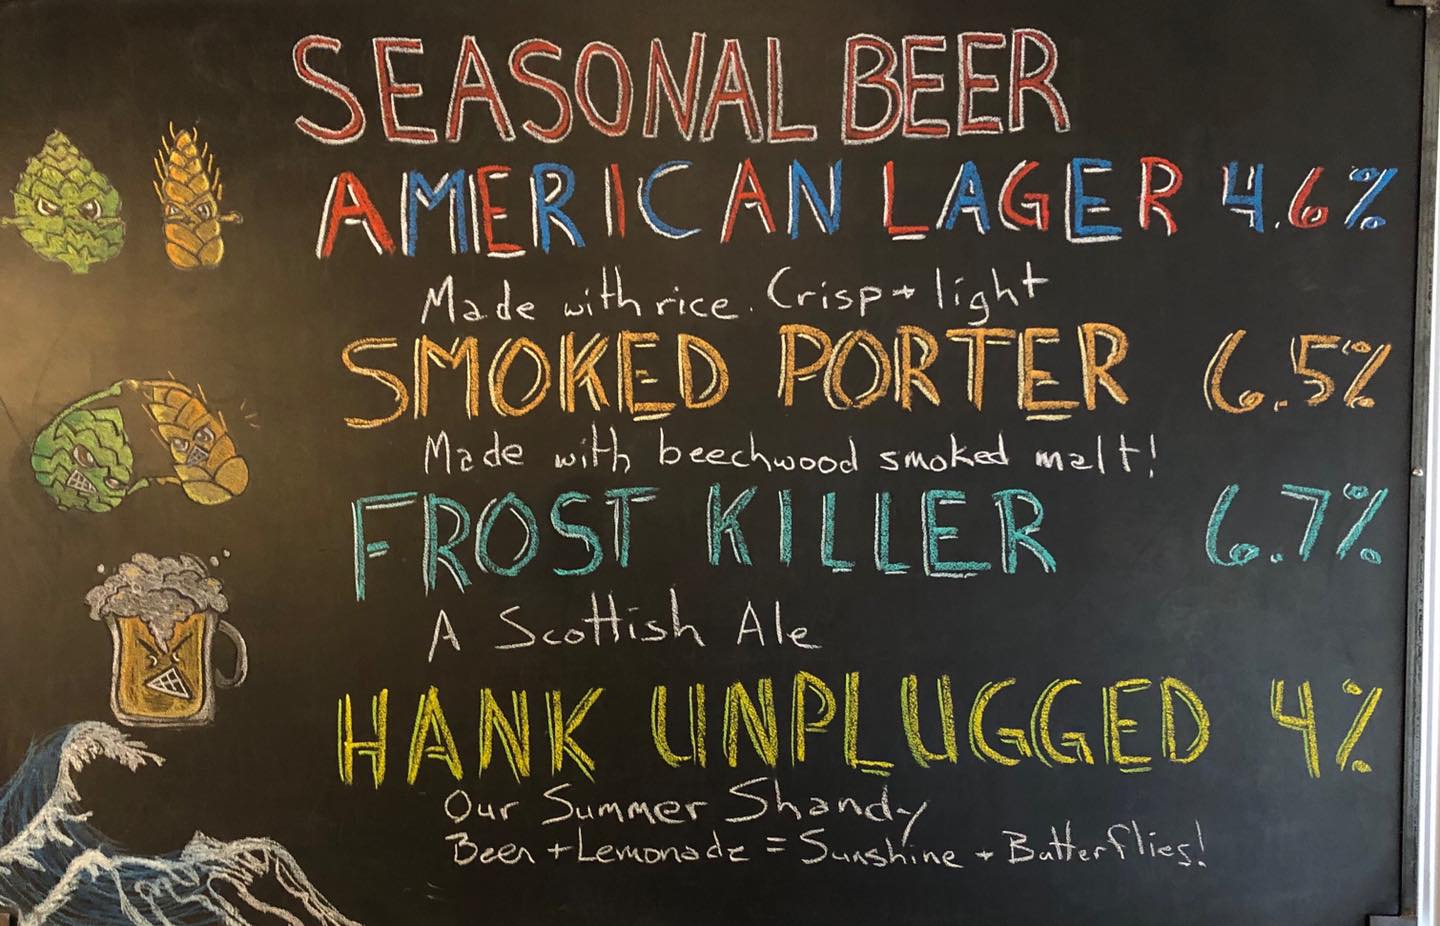 SEASONAL BEER
AMERICAN LAGER 4.6%
Made with rice. Crisp + light
SMOKED PORTER 6.5%
Made with beechwood smoked malt!
FROST KILLER 6.7%
A Scottish Ale
HANK UNPLUGGED 4%
Our Summer Shandy
Beer + Lemonade = Sunshine + Butterflies!